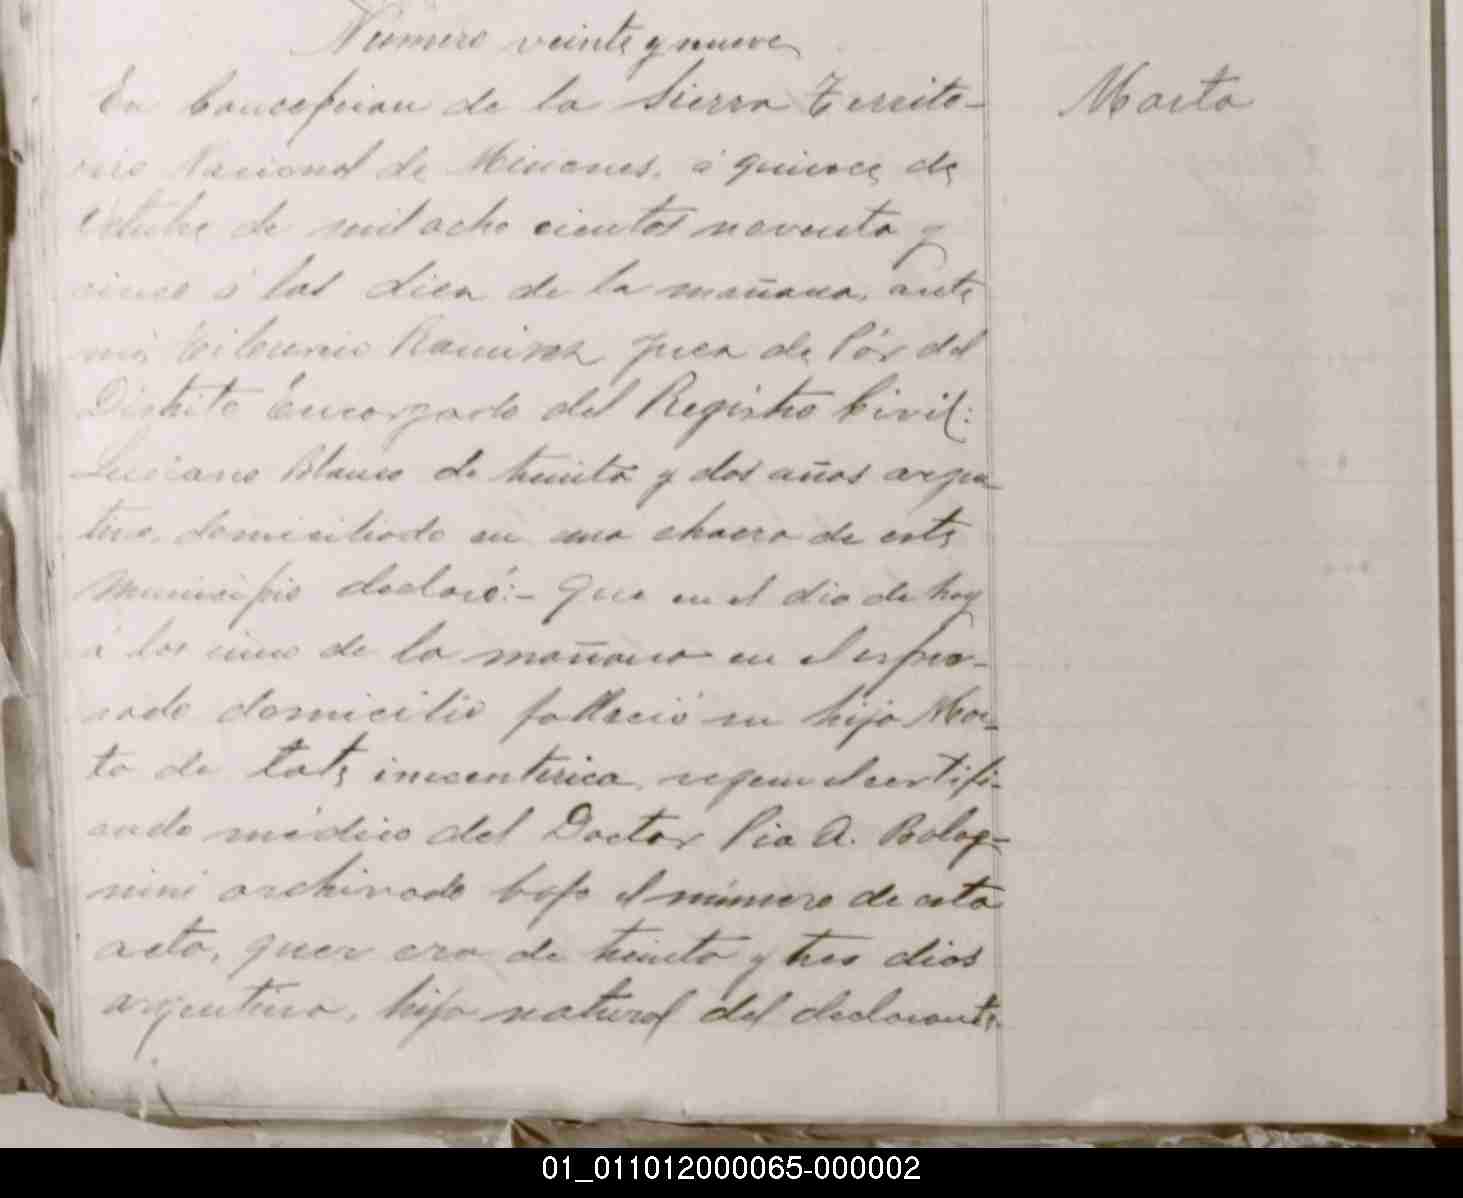 Número veinte y nueve
En Concepcion de la Sierra Territo-
rio Nacional de Misiones, á quince de
Octubre de mil ocho cientos noventa y
cinco á las diez de la mañana, ante
mi, Ramirez Juez de Páz del
Distrito Encargado del Registro Civil:
Luciano Blanco de treinta y dos años argen
tino, domiciliado en una chacra de este
Municipio declaró:- Que en el dia de hoy
á las cinco de la mañana en el espre-
sado domicilio falleció su hija Mar-
ta de segun el certifi-
cado médico del Doctor Pio A. Bolog-
nini archivado bajo el número de esta
acta, que era de treinta y tres dias
argentina, hija natural del declarante
Marta
01_011012000065-000002